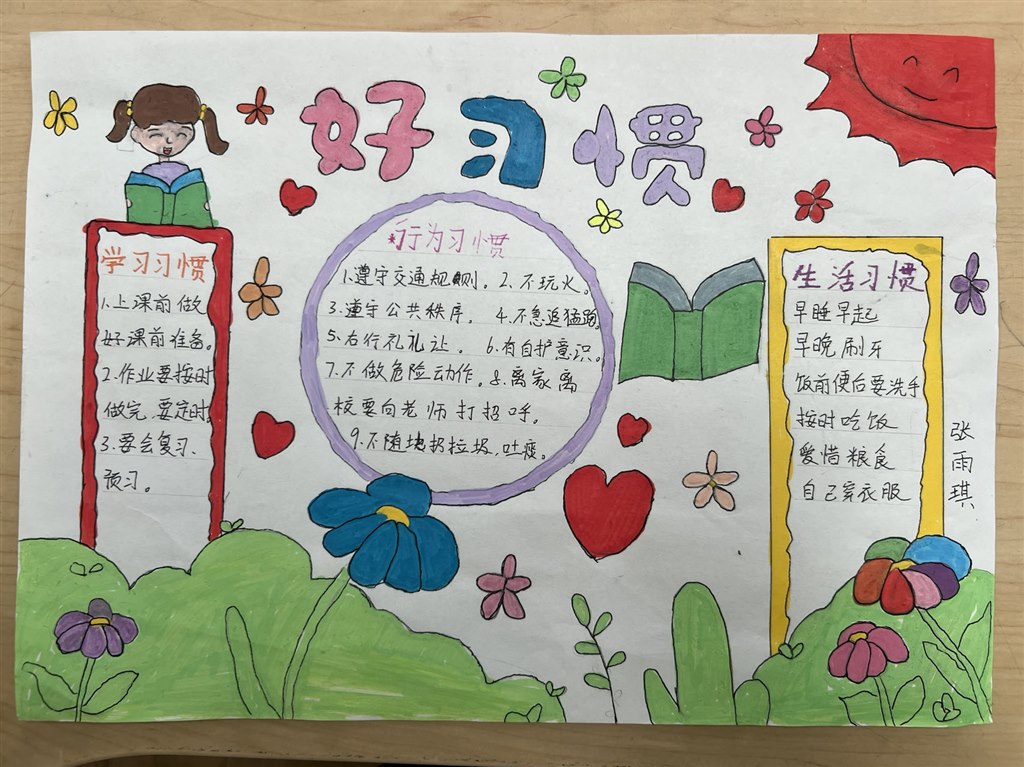 好习惯
学习习惯
1.上课前做
好课前准备。
2.作业要按时
做完,要定时。
3.要会复习、
预习。
行为习惯
1.遵守交通规则。2.不玩火。
3.遵守公共秩序。4.不急追猛跑。
5.右行礼礼让。6.有自护意识。
7.不做危险动作。8.离家离
校要向老师打招呼。
9.不随地扔垃圾,吐痰。
生活习惯
早睡早起
早晚刷牙
饭前便后要洗手
按时吃饭
爱惜粮食
自己穿衣服
张雨琪